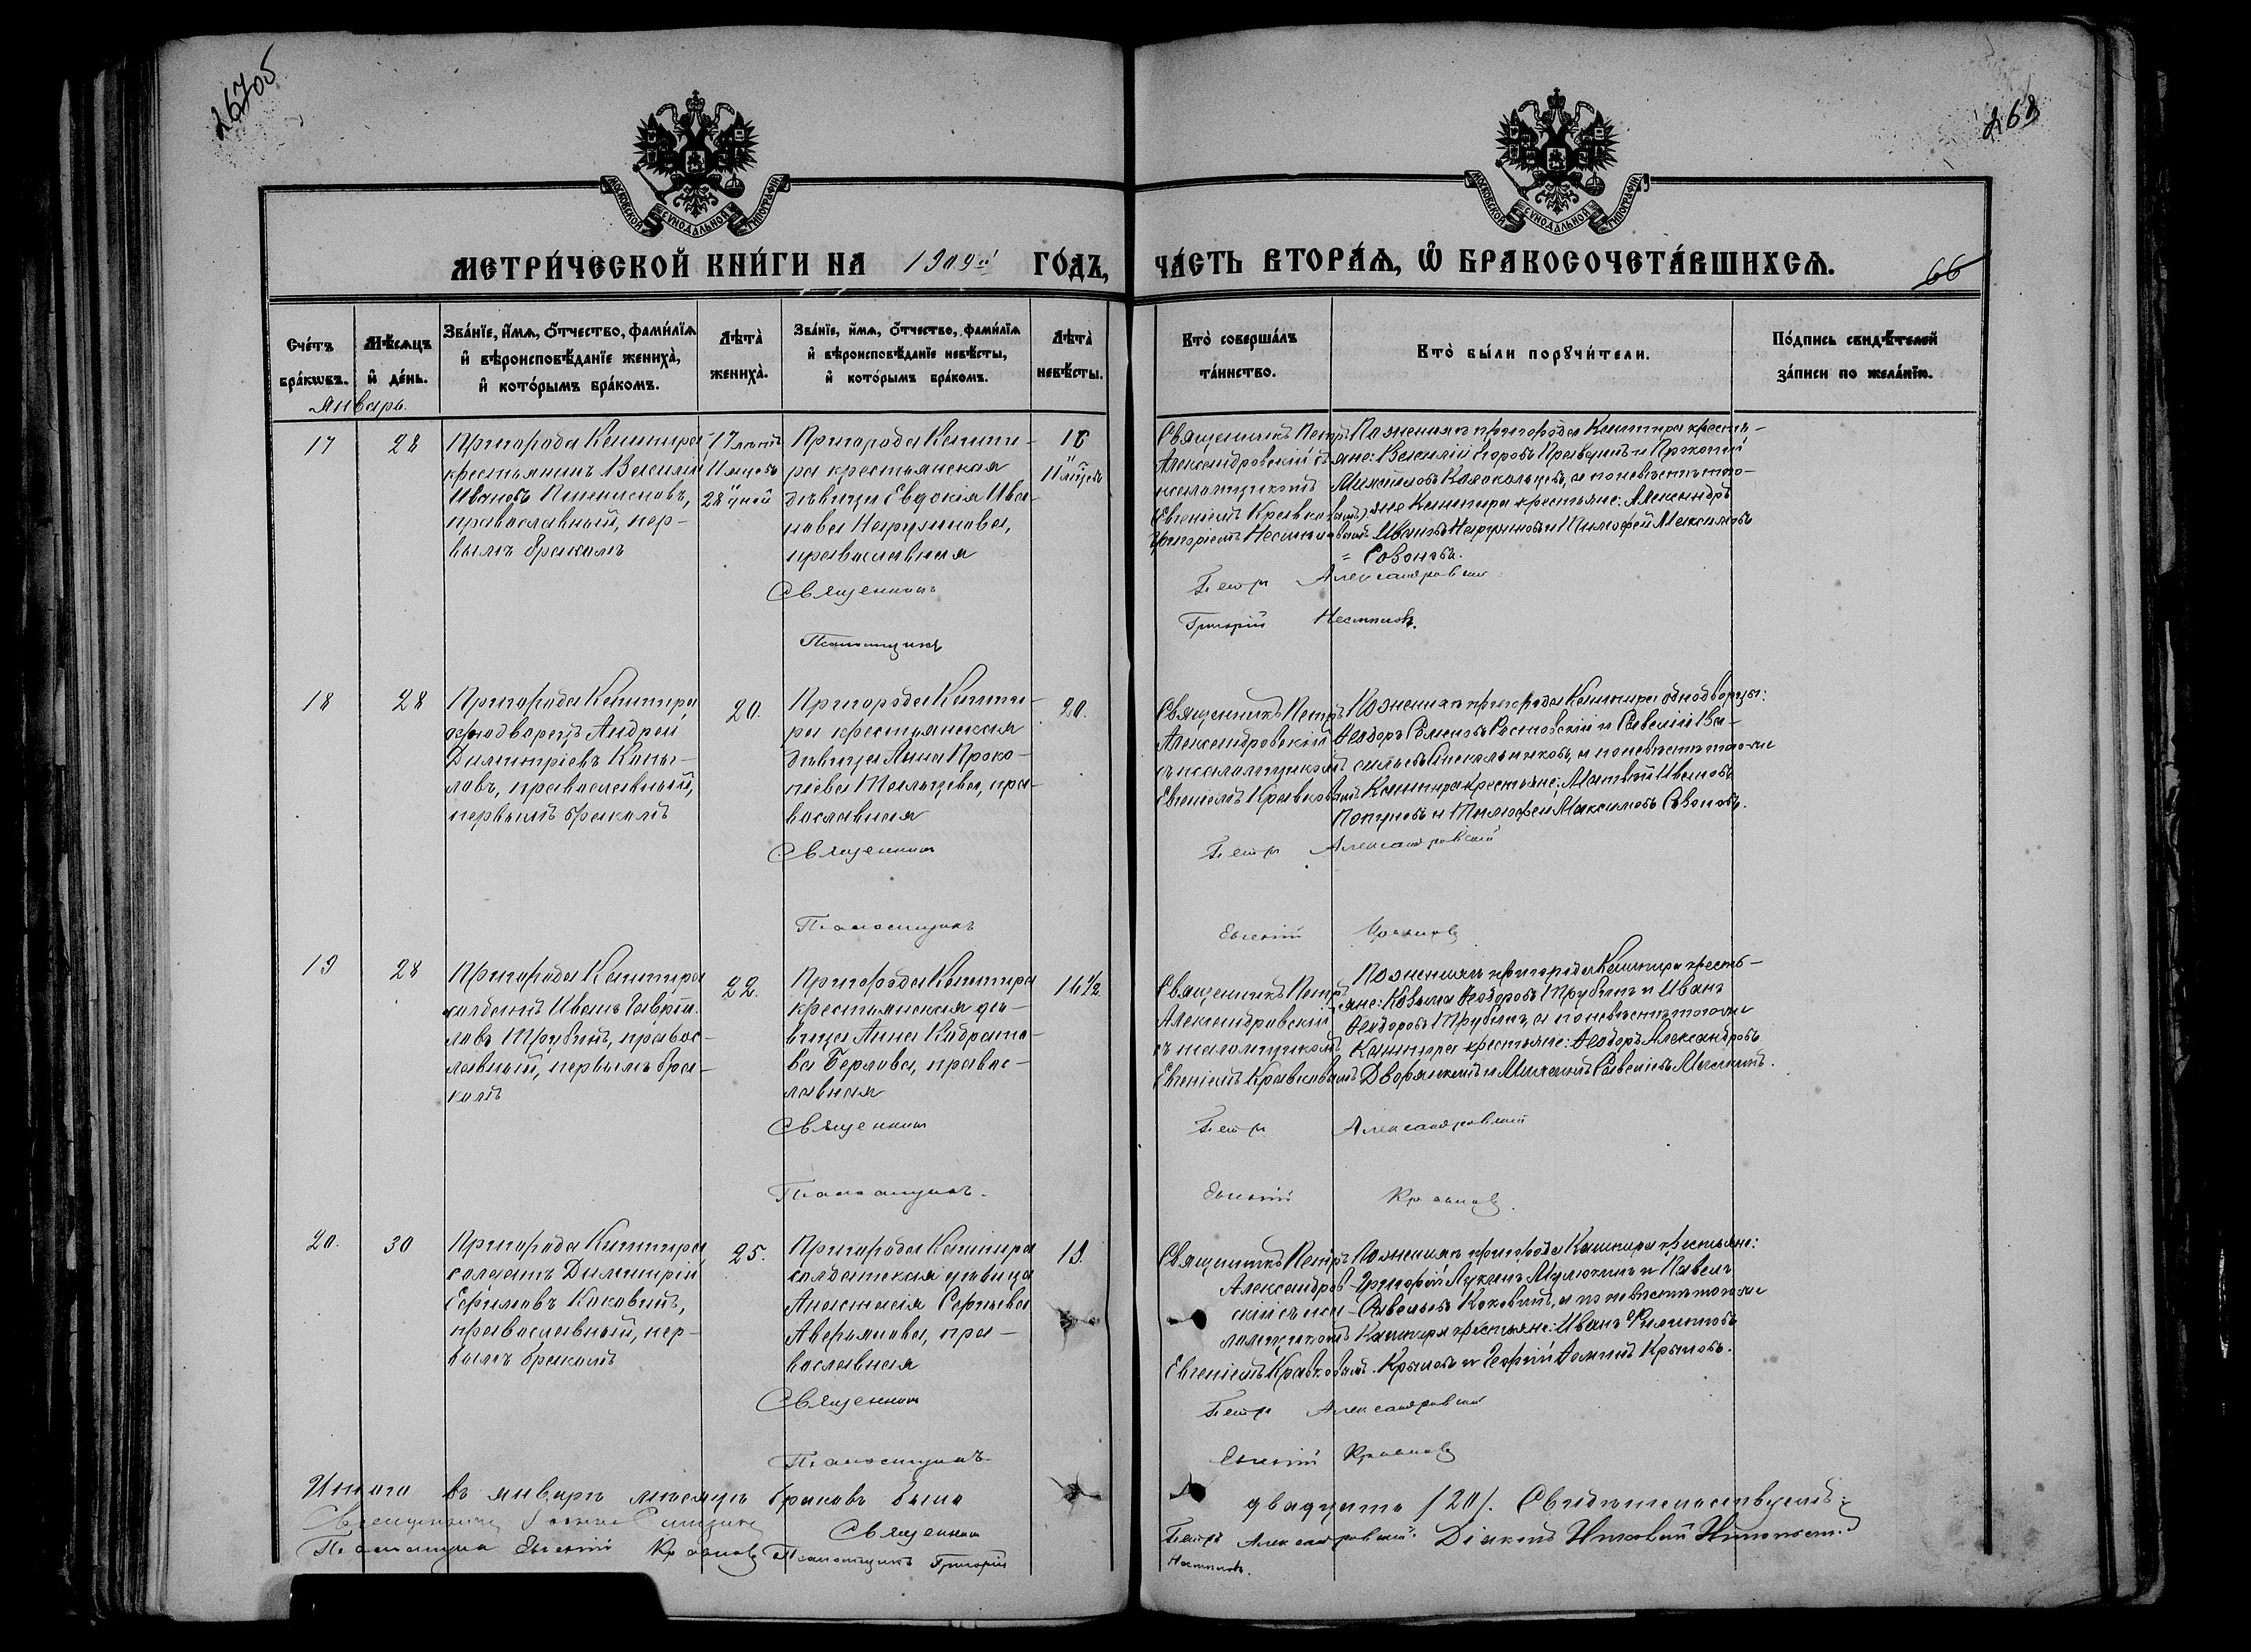 26705
268
МОСКОВСКОЙ СѴНОДАЛЬНОЙ ТИПОГРАФІИ
МОСКОВСКОЙ СѴНОДАЛЬНОЙ ТИПОГРАФІИ
МЕТРИ́ЧЕСКОЙ КНИ́ГИ НА 1909й ГО́ДЪ,
ЧА́СТЬ ВТОРА́Ѧ, Ѡ҆ БРАКОСОЧЕТА́ВШИХСѦ.
66
Сче́тъ
бра́кѡвъ.
Мѣ́сѧцъ
и҆ де́нь.
Зва́нїе, и҆́мѧ, ѻ҆́тчество, фами́лїѧ
и҆ вѣроисповѣ́данїе жениха̀,
и҆ кото́рымъ бра́комъ.
Лѣ́та̀
жениха̀.
Зва́нїе, и҆́мѧ, ѻ҆́тчество, фами́лїѧ
и҆ вѣроисповѣ́данїе невѣ́сты,
и҆ кото́рымъ бра́комъ.
Лѣ́та̀
невѣ́сты.
Кто̀ соверша́лъ
та́инство.
Кто̀ бы́ли порꙋчи́тели.
По́дпись свидѣ́телей
за́писи по жела́нїю.
Январь.
17
28
Пригорода Каштира
крестьянинъ Василій
Ивановъ
православный, пер-
вымъ бракомъ
17 лѣтъ
11 мѣцевъ
28 дней
Пригорода Кашти-
ра крестьянская
дѣвица Евдокія Ива-
нова
православная
16
11 мѣцевъ
Священникъ Петръ
Александровскій съ
псаломщикомъ
Евгеніемъ Кравковымъ
Григоріемъ
По женихѣ пригорода Каштира кресть-
яне: Василій Егоровъ и Прокопій
Михайловъ Колокольцевъ, а по невѣстѣ того-
же Каштира крестьяне: Александръ
Ивановъ и Тимофей Максимовъ
Созоновъ.
Священникъ
Петръ Александровскій
Псаломщикъ
Григорій
18
28
Пригорода Каштира
однодворецъ Андрей
Димитріевъ Копы-
ловъ, православный,
первымъ бракомъ
20.
Пригорода Кашти-
ра крестьянская
дѣвица Анна Проко-
піева Тельцева, пра-
вославная
20.
Священникъ Петръ
Александровскій
съ псаломщикомъ
Евгеніемъ Кравковымъ
По женихѣ пригорода Каштира однодворцы:
Ѳеодоръ Семеновъ Сосновскій и Савелій Ва-
сильевъ а по невѣстѣ того-же
Каштира крестьяне: Матвѣй Ивановъ
и Тимофей Максимовъ Созоновъ.
Священникъ
Петръ Александровскій
Псаломщикъ
Евгеній Кравковъ
19
28
Пригорода Каштира
солдатъ Иванъ Гаврі-
ловъ Трубинъ, правос-
лавный, первымъ бра-
комъ
22.
Пригорода Каштира
крестьянская дѣ-
вица Анна Кодрато-
ва Берлова, правос-
лавная
16½
Священникъ Петръ
Александровскій
съ псаломщикомъ
Евгеніемъ Кравковымъ
По женихѣ пригорода Каштира кресть-
яне: Козьма Ѳеодоровъ Трубинъ и Иванъ
Ѳеодоровъ Трубинъ, а по невѣстѣ того-же
Каштира крестьяне: Ѳеодоръ Александровъ
и Михаилъ Савельевъ
Священникъ
Петръ Александровскій
Псаломщикъ.
Евгеній Кравковъ.
20.
30
Пригорода Каштира
солдатъ Димитрій
Ефимовъ Коковинъ,
православный, пер-
вымъ бракомъ
25.
Пригорода Каштира
солдатская дѣвица
Анастасія Сергіева
Аверьянова, пра-
вославная
19.
Священникъ Петръ
Александров-
скій съ пса-
ломщикомъ
Евгеніемъ Кравковымъ.
По женихѣ пригорода Каштира крестьяне:
Григорій Лукинъ и Павелъ
Савельевъ Коковинъ, а по невѣстѣ того-же
Каштира крестьяне: Иванъ Филиповъ
Крыловъ и Георгій Ѳоминъ Крыловъ.
Священникъ
Петръ Александровскій
Псаломщикъ
Евгеній Кравковъ
Итого въ январѣ мѣсяцѣ браковъ было двадцать /20/. Свидѣтельствуемъ:
Священникъ
Священникъ Петръ Александровскій. Діаконъ
Псаломщикъ Евгеній Кравковъ Псаломщикъ Григорій